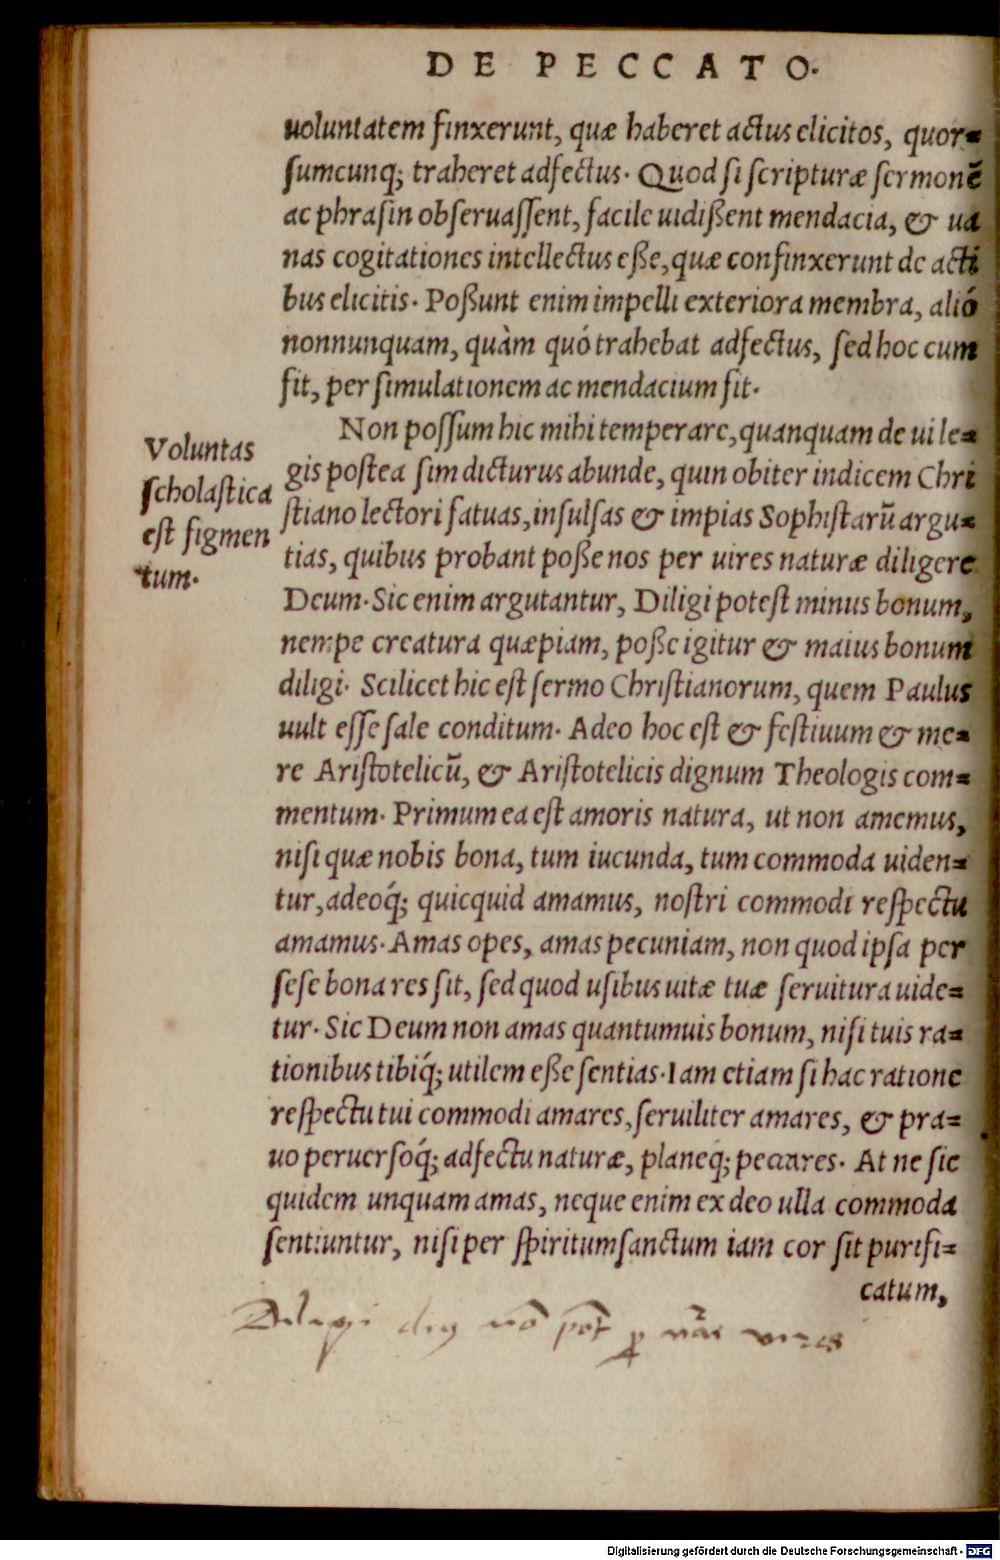 DE PECCATO.
uoluntatem finxerunt, quæ haberet actus elicitos, quor=
sumcunq; traheret adfectus. Quod si scripturæ sermonē
ac phrasin obseruassent, facile uidißent mendacia, & ua
nas cogitationes intellectus eße, quæ confinxerunt de acti
bus elicitis. Poßunt enim impelli exteriora membra, alió
nonnunquam, quàm quó trahebat adfectus, sed hoc cum
fit, per simulationem ac mendacium fit.
Voluntas
scholastica
est figmen
tum.
Non possum hic mihi temperare, quanquam de ui le=
gis postea sim dicturus abunde, quin obiter indicem Chri
stiano lectori fatuas, insulsas & impias Sophistarū argu=
tias, quibus probant poße nos per uires naturæ diligere
Deum. Sic enim argutantur, Diligi potest minus bonum,
nempe creatura quæpiam, poße igitur & maius bonum
diligi. Scilicet hic est sermo Christianorum, quem Paulus
uult esse sale conditum. Adeo hoc est & festiuum & me=
re Aristotelicū, & Aristotelicis dignum Theologis com=
mentum. Primum ea est amoris natura, ut non amemus,
nisi quæ nobis bona, tum iucunda, tum commoda uiden=
tur, adeoq́; quicquid amamus, nostri commodi respectu
amamus. Amas opes, amas pecuniam, non quod ipsa per
sese bona res sit, sed quod usibus uitæ tuæ seruitura uide=
tur. Sic Deum non amas quantumuis bonum, nisi tuis ra=
tionibus tibiq́; utilem eße sentias. Iam etiam si hac ratione
respectu tui commodi amares, seruiliter amares, & pra=
uo peruersoq́; adfectu naturæ, planeq; peccares. At ne sic
quidem unquam amas, neque enim ex deo ulla commoda
sentiuntur, nisi per spiritum sanctum iam cor sit purifi=
catum,
nō vires
Digitalisierung gefördert durch die Deutsche Forschungsgemeinschaft - DFG